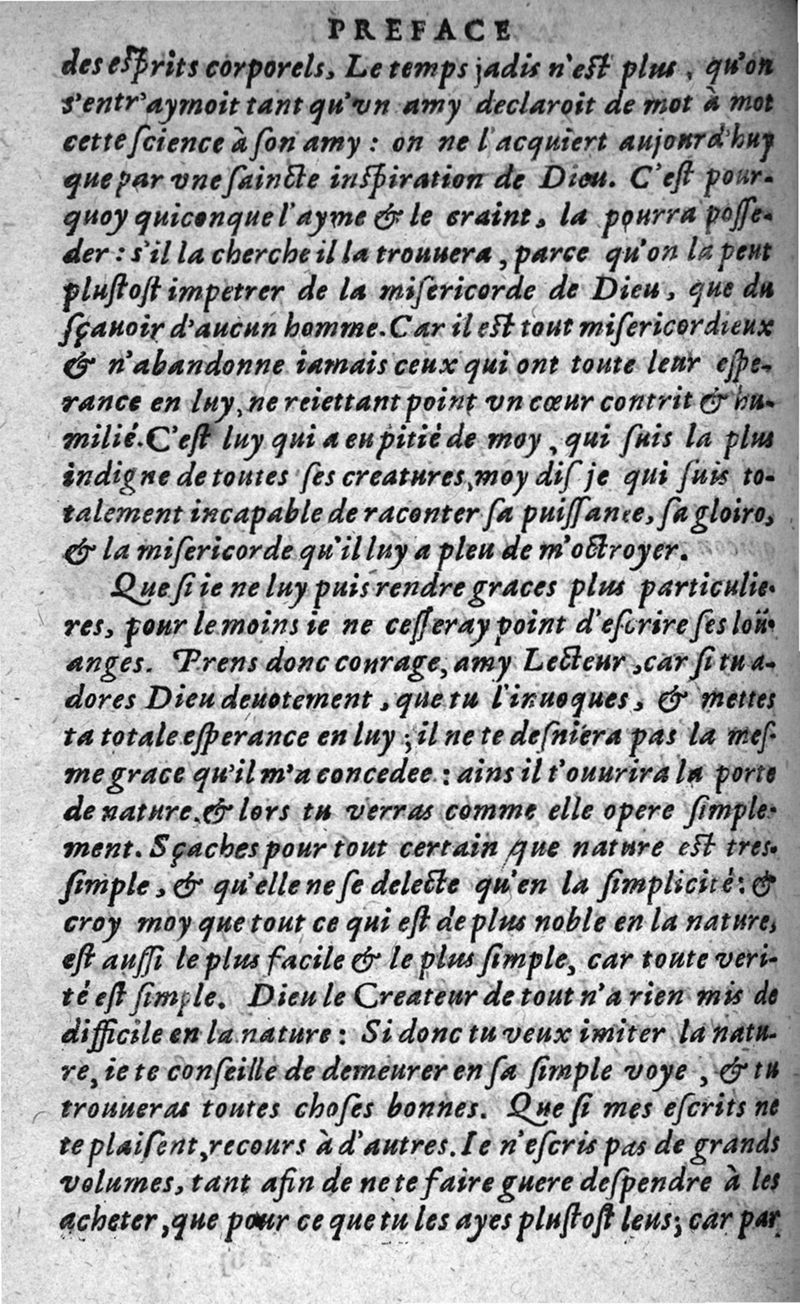 PREFACE
des eſprits corporels, Le temps jadis n'eſt plus, qu'on
s'entr'aymoit tant qu'vn amy declaroit de mot à mot
cette ſcience à ſon amy : on ne l'acquiert aujourd'huy
que par vne ſaincte inſpiration de Dieu. C'eſt pour-
quoy quiconque l'ayme & le craint, la pourra poſſe-
der : s'il la cherche il la trouuera, parce qu'on la peut
pluſtoſt impetrer de la miſericorde de Dieu, que du
ſçauoir d'aucun homme. Car il eſt tout miſericordieux
& n'abandonne iamais ceux qui ont toute leur eſpe-
rance en luy, ne reiettant point vn cœur contrit & hu-
milié. C'eſt luy qui a eu pitié de moy, qui ſuis la plus
indigne de toutes ſes creatures, moy diſ je qui ſuis to-
talement incapable de raconter ſa puiſſance, ſa gloiro,
& la miſericorde qu'il luy a pleu de m'octroyer.
Que ſi ie ne luy puis rendre graces plus particulie-
res, pour le moins ie ne ceſſeray point d'eſcrire ſes loü-
anges. Prens donc courage, amy Lecteur, car ſi tu a-
dores Dieu deuotement, que tu l'inuoques, & mettes
ta totale eſperance en luy ; il ne te deſniera pas la meſ-
me grace qu'il m'a concedee : ains il t'ouurira la porte
de nature, & lors tu verras comme elle opere ſimple-
ment. Sçaches pour tout certain que nature eſt tres-
ſimple, & qu'elle ne ſe delecte qu'en la ſimplicité : &
croy moy que tout ce qui eſt de plus noble en la nature,
eſt auſſi le plus facile & le plus ſimple, car toute veri-
té eſt ſimple. Dieu le Createur de tout n'a rien mis de
difficile en la nature : Si donc tu veux imiter la natu-
re, ie te conſeille de demeurer en ſa ſimple voye, & tu
trouueras toutes choſes bonnes. Que ſi mes eſcrits ne
te plaiſent, recours à d'autres. Ie n'eſcris pas de grands
volumes, tant afin de ne te faire guere deſpendre à les
acheter, que pour ce que tu les ayes pluſtoſt leus ; car par